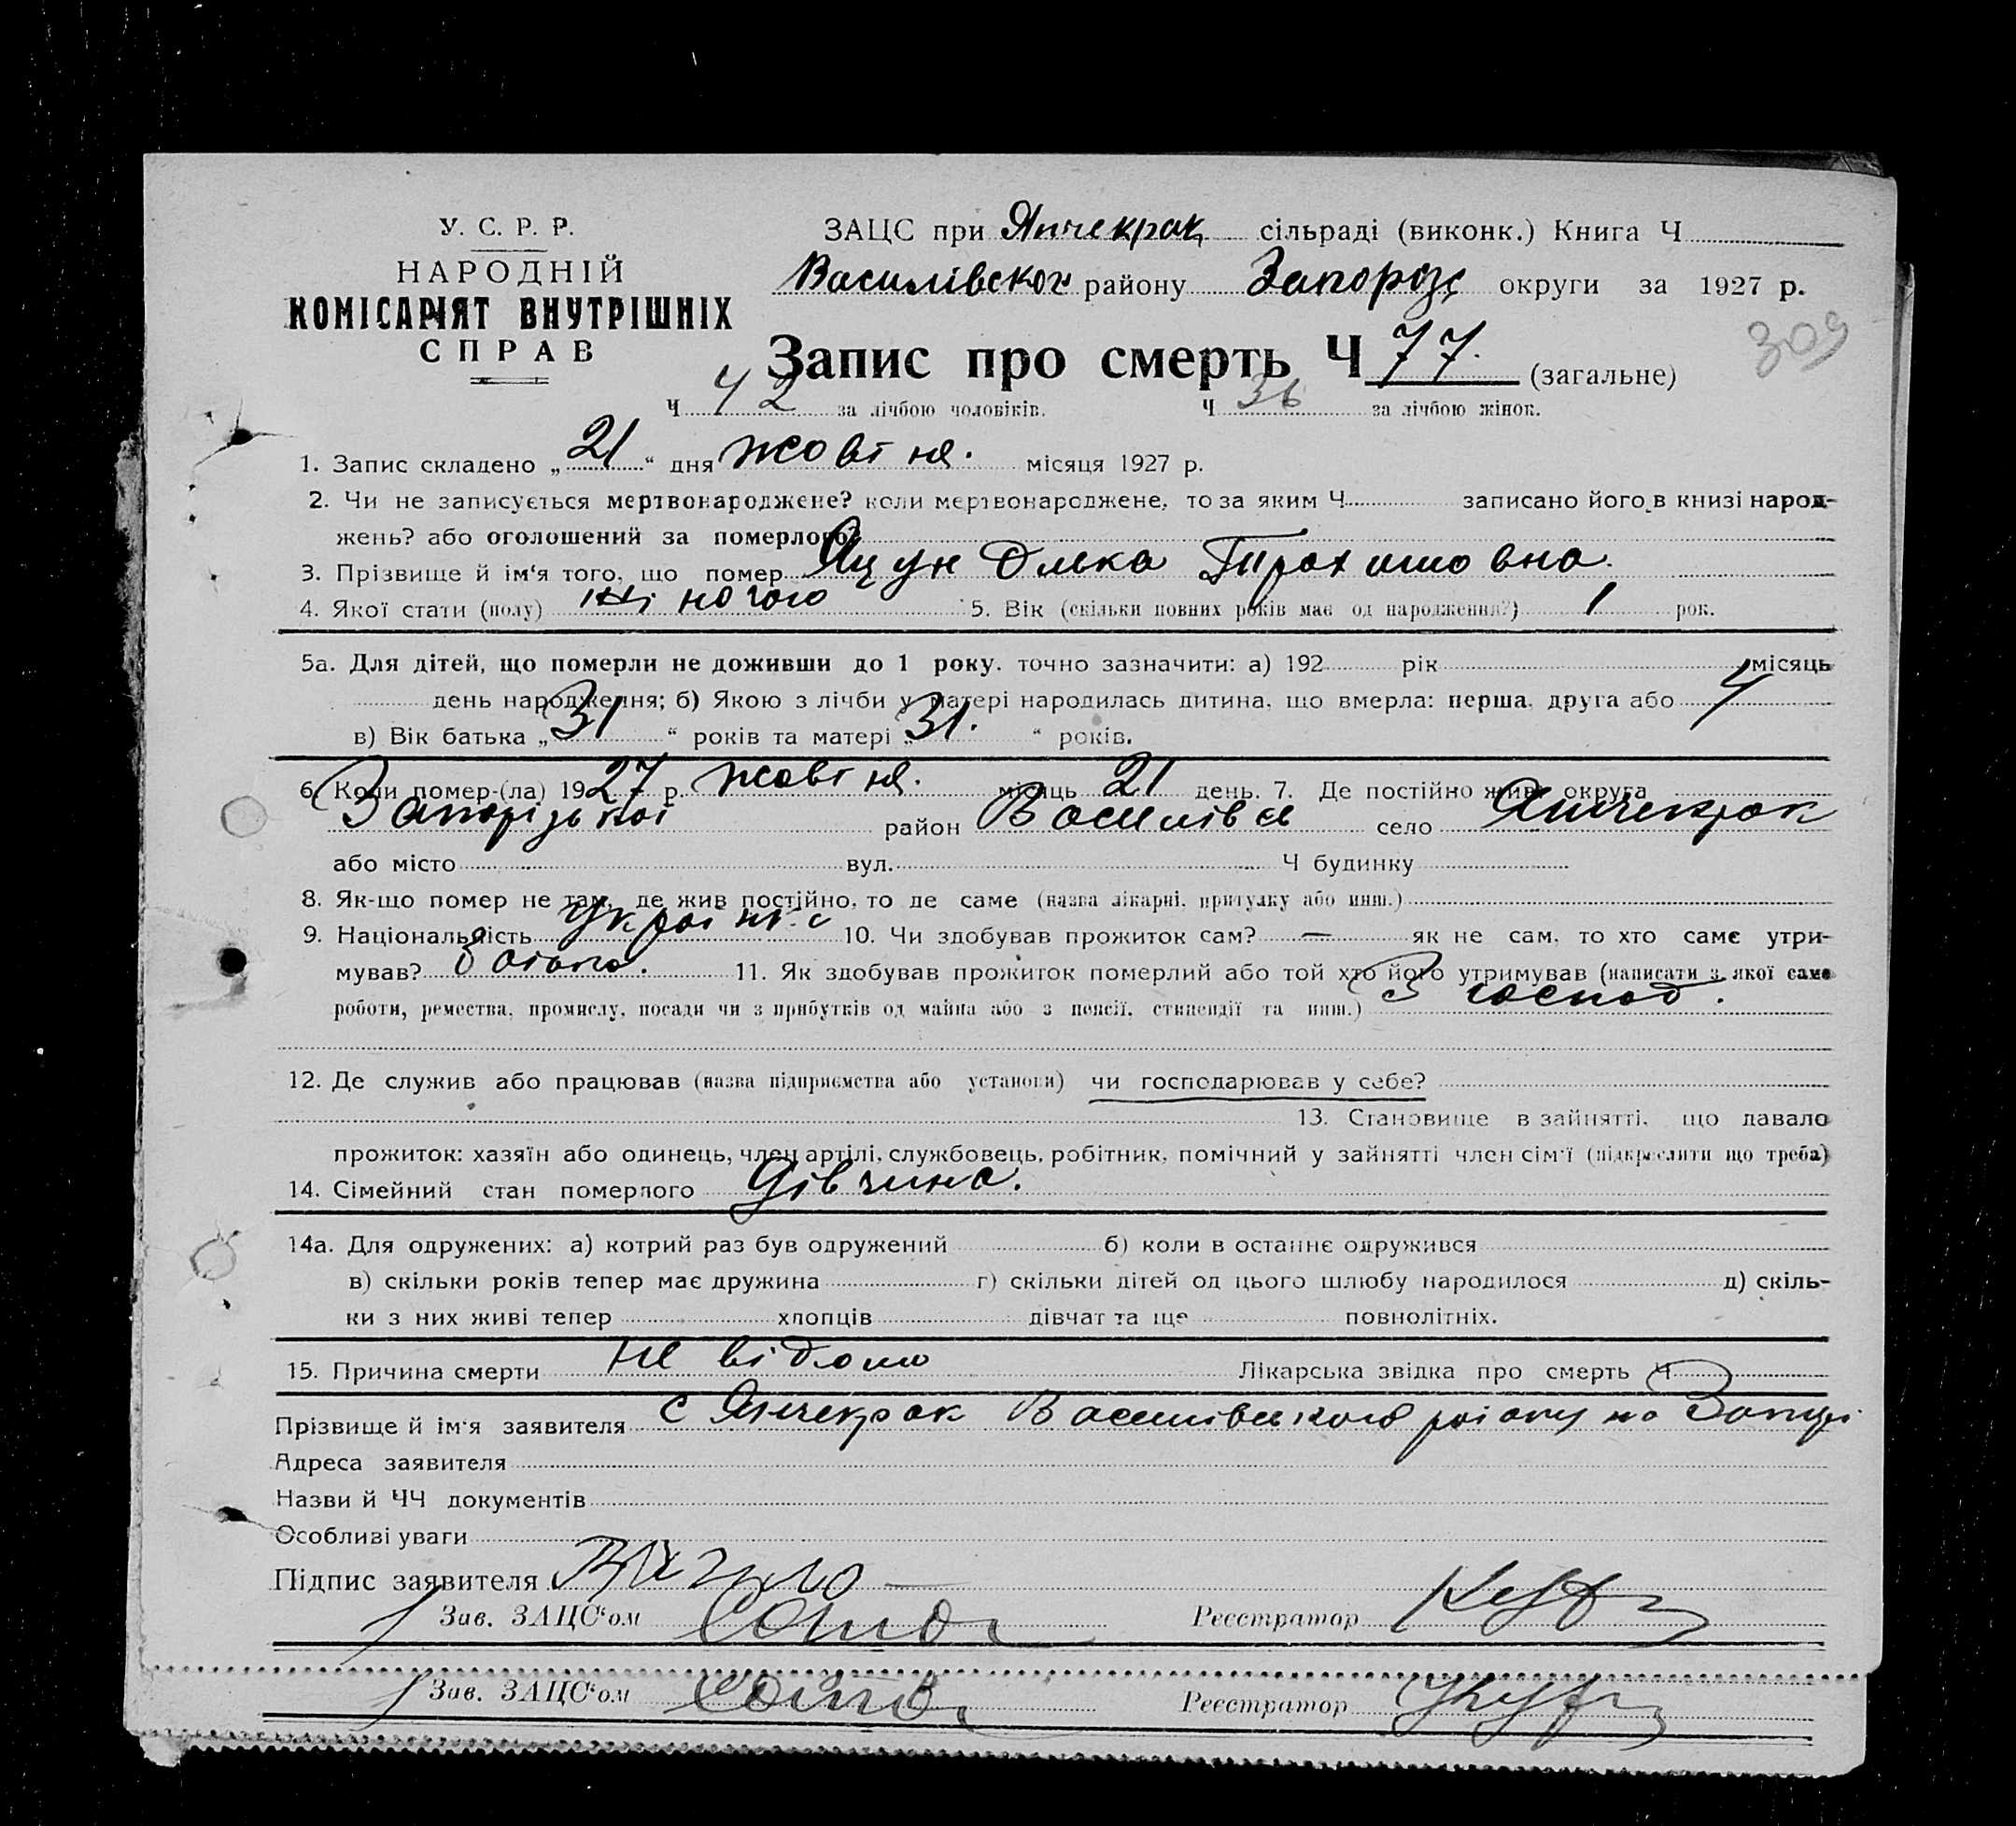 У. С. Р. Р.
НАРОДНІЙ
КОМІСАРІЯТ ВНУТРІШНІХ
СПРАВ
ЗАЦС при Янчекрак сільраді (виконк.) Книга Ч
Василівског району Запорізь округи за 1927 р.
309
Запис про смерть Ч 77. (загальне)
Ч 42 за лічбою чоловіків. Ч 36 за лічбою жінок.
1. Запис складено „21“ дня жовтня. місяця 1927 р.
2. Чи не записується мертвонароджене? коли мертвонароджене, то за яким Ч записано його в книзі народ-
жень? або оголошений за померлого?
3. Прізвище й ім‘я того, що помер Яцун Олька Трохимовна.
4. Якої стати (полу) жіночого 5. Вік (скільки повних років має од народження?) 1 рок.
5а. Для дітей, що померли не доживши до 1 року. точно зазначити: а) 192 рік місяць
день народження; б) Якою з лічби у матері народилась дитина, що вмерла: перша, друга або 4
в) Вік батька „31“ років та матері „31.“ років.
6. Коли помер-(ла) 1927 р. жовтня. місяць 21 день. 7. Де постійно жив: округа
Запорізької район Василівсь село Янчекрак
або місто вул. Ч будинку
8. Як-що помер не там, де жив постійно, то де саме (назва лікарні, притулку або инш.)
9. Національність Українс 10. Чи здобував прожиток сам? — як не сам, то хто саме утри-
мував? 11. Як здобував прожиток померлий або той хто його утримував (написати з якої саме
роботи, ремества, промислу, посади чи з прибутків од майна або з пенсії, стипендії та инш.) З господ.
12. Де служив або працював (назва підприємства або установи) чи господарював у себе?
13. Становище в зайнятті, що давало
прожиток: хазяїн або одинець, член артілі, службовець, робітник, помічний у зайнятті член сім‘ї (підкреслити що треба)
14. Сімейний стан померлого Дівчина.
14а. Для одружених: а) котрий раз був одружений б) коли в останнє одружився
в) скільки років тепер має дружина г) скільки дітей од цього шлюбу народилося д) скіль-
ки з них живі тепер хлопців дівчат та ще повнолітніх.
15. Причина смерти не відомо Лікарська звідка про смерть Ч
Прізвище й ім‘я заявителя с Янчекрак Василівського району на Запорі
Адреса заявителя
Назви й ЧЧ документів
Особливі уваги
Підпис заявителя
Зав. ЗАЦС‘ом Реєстратор
Зав. ЗАЦС‘ом Реєстратор